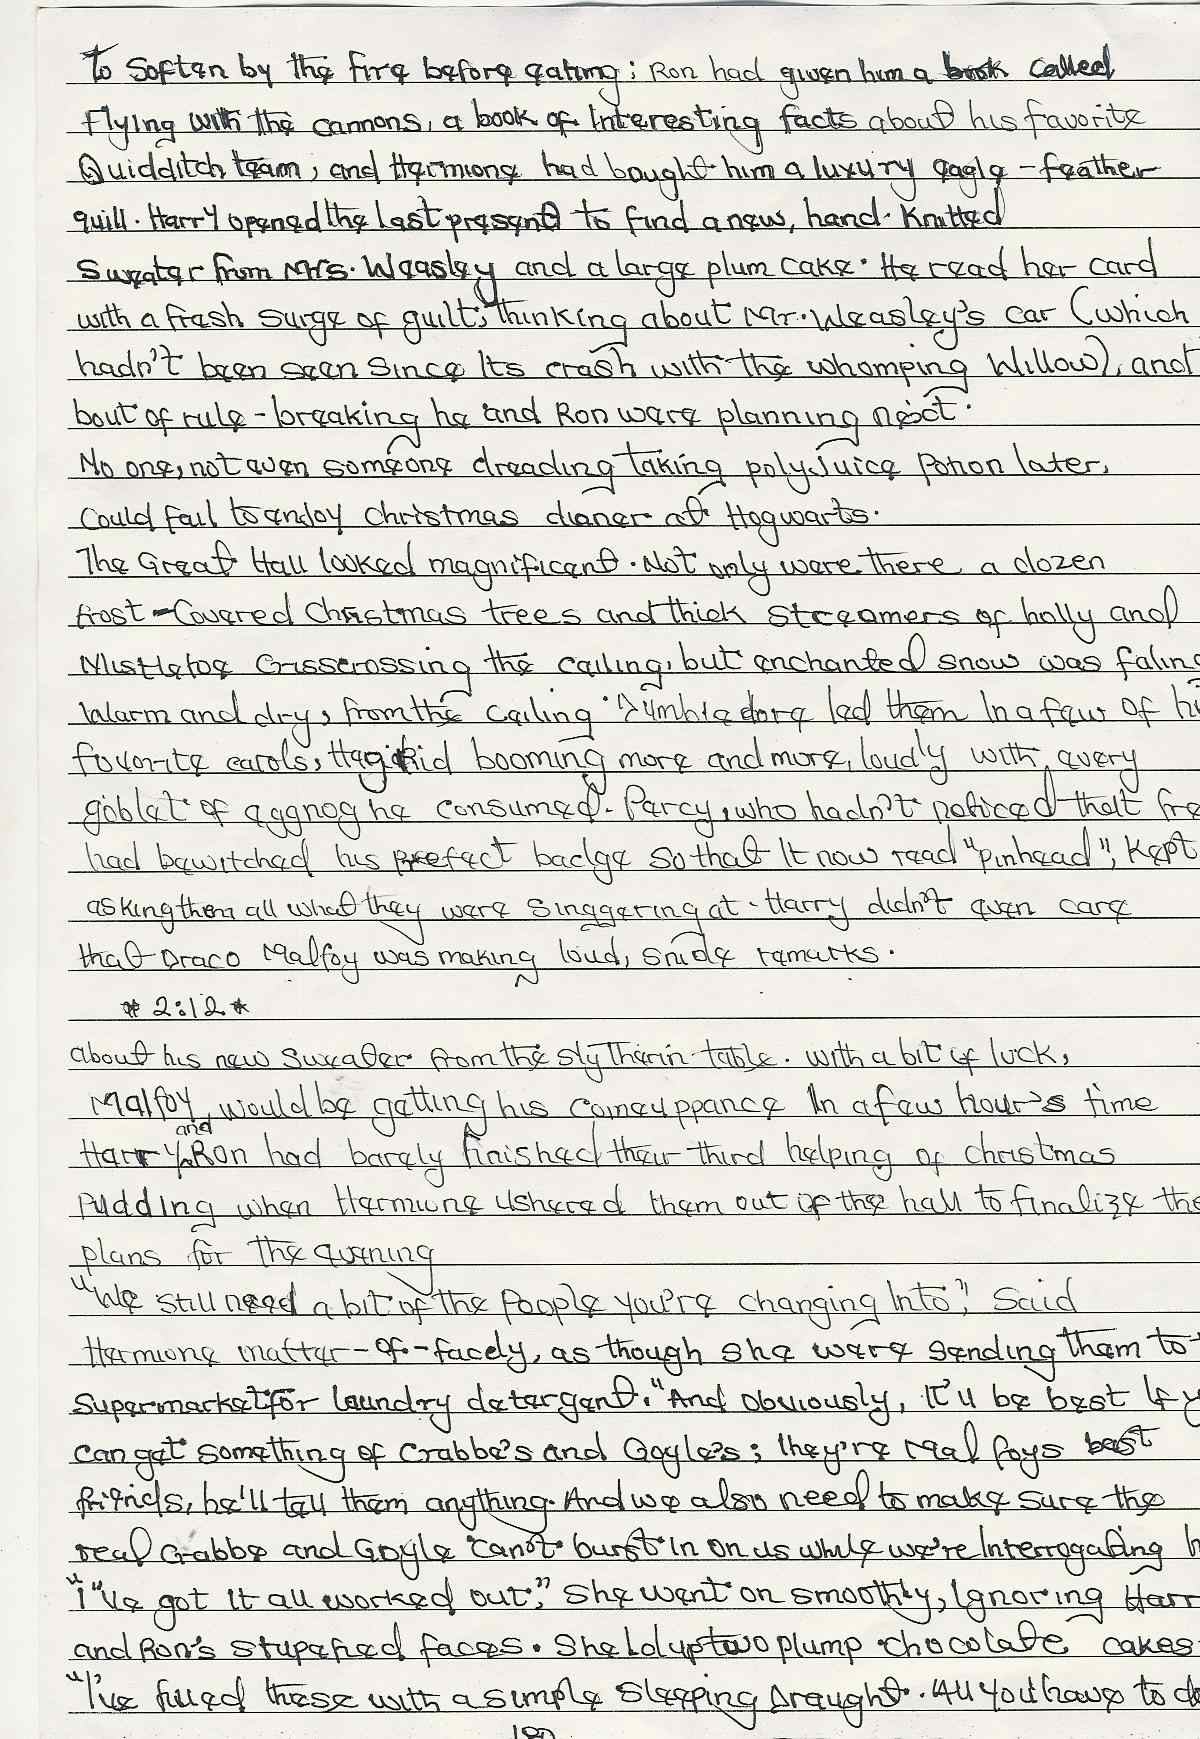 to Soften by the fire before eating; Ron had given him a book called
Flying with the cannons, a book of Interesting facts about his favorite
Quidditch team; and Hermione had bought him a luxury eagle-feather
quill. Harry opened the last present to find a new, hand-Knitted
Sweater from Mrs. Weasley and a large plum cake. He read her card
with a fresh surge of guilt, thinking about Mr. Weasley's car (which
hadn't been seen Since Its crash with the whomping Willow), and
bout of rule-breaking he and Ron were planning next.
No one, not even someone dreading taking polyjuice Potion later,
Could fail to enjoy Christmas dinner at Hogwarts.
The Great Hall looked magnificent. Not only were there a dozen
frost-Covered Christmas trees and thick streamers of holly and
Mistletoe Crisscrossing the ceiling, but enchanted snow was faling
Warm and dry, from the ceiling Dumbledore led them In a few of hi
favorite carols, Hagrid booming more and more, loudly with every
goblet of eggnog he consumed. Percy, who hadn't noticed that fre
had bewitched his prefect badge so that It now read "pinhead", Kept
asking them all what they were Singgering at. Harry didn't even care
that Draco Malfoy was making loud, snide remarks.
* 2:12 *
about his new Sweater from the Slytherin table. With a bit of luck,
Malfoy, would be getting his comeuppance In a few hour's time
Harry and Ron had barely finished their third helping of christmas
Pudding when Hermione ushered them out of the hall to finalize the
plans for the evening
"We still need a bit of the People you're changing Into," Said
Hermione matter-of-facely, as though she were sending them to
Supermarket for laundry detergent. "And obviously, It'll be best If y
can get something of Crabbe's and Goyle's; they're Malfoys best
friends, he'll tell them anything. And we also need to make sure the
real Crabbe and Goyle can't burst In on us while we're Interrogating h
"I've got It all worked out," She went on smoothly, Ignoring Harr
and Ron's stupefied faces. She held up two plump chocolate cakes
"I've filled these with a simple Sleeping Draught. All you have to do